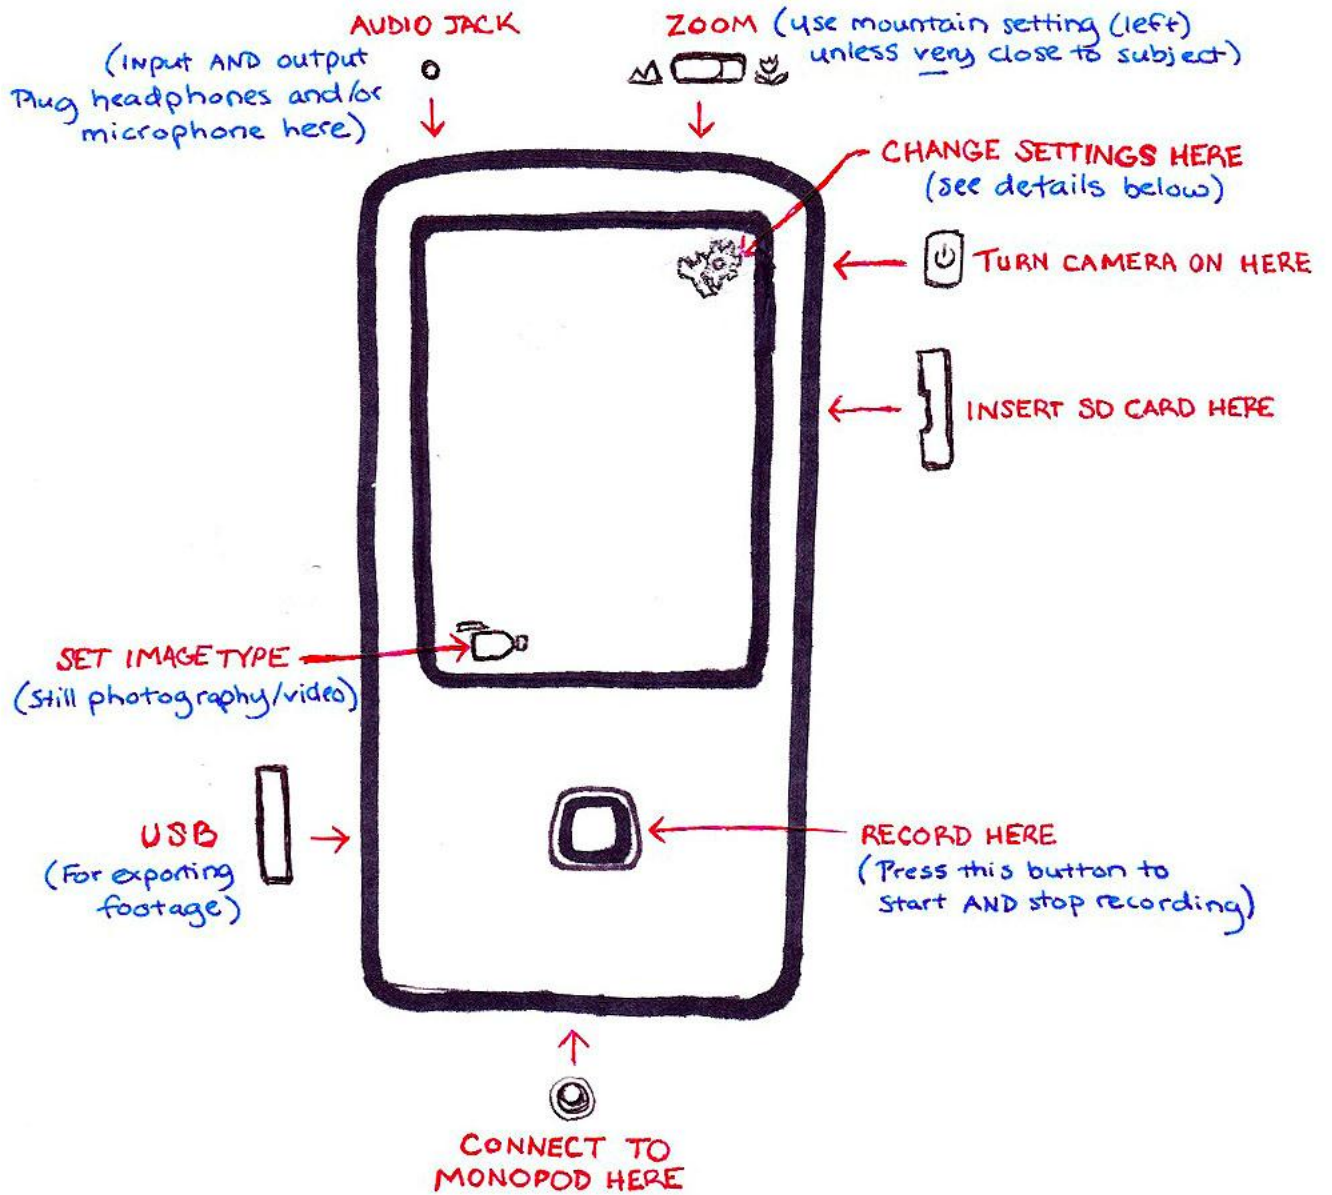 AUDIO JACK
(Input AND output
Plug headphones and/or
microphone here)
ZOOM (use mountain setting (left)
unless very close to subject)
CHANGE SETTINGS HERE
(see details below)
TURN CAMERA ON HERE
INSERT SD CARD HERE
SET IMAGE TYPE
(Still photography/video)
USB
(For exporting
footage)
RECORD HERE
(Press this button to
Start AND stop recording)
CONNECT TO
MONOPOD HERE